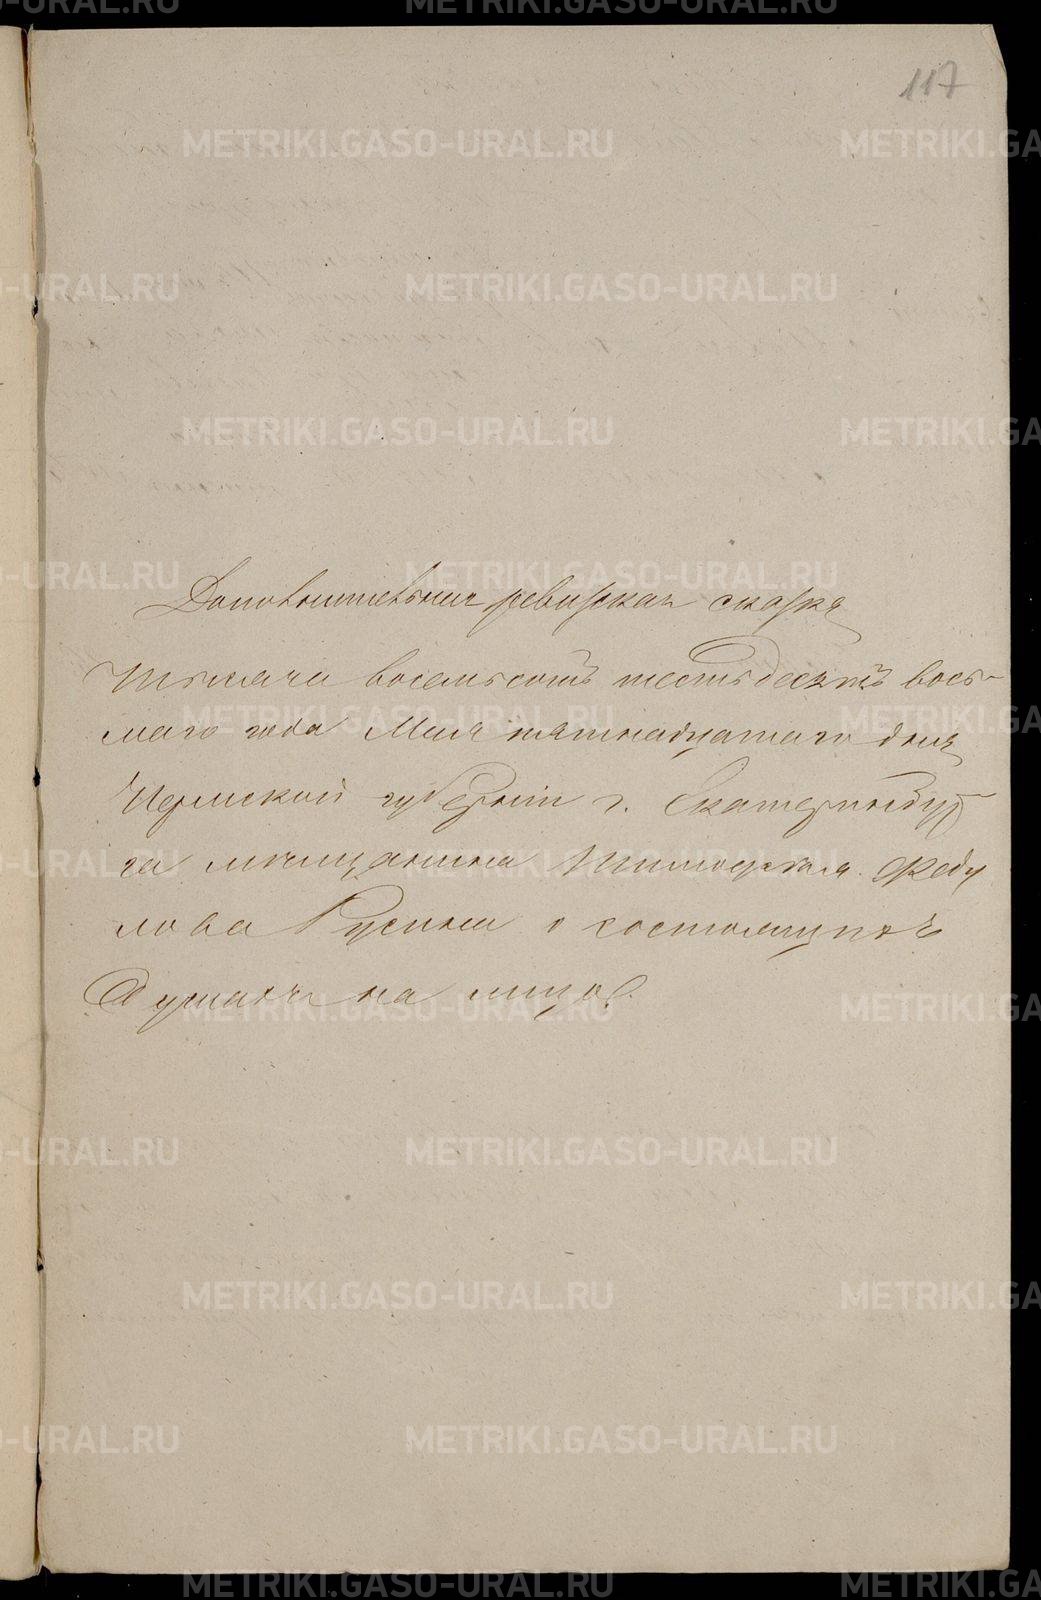 117
Дополнительная ревизская сказка
тысяча восемьсотъ шестьдесятъ вось-
маго года Мая пятнадцатаго дня
Пермской губерніи г. Екатеринбур-
га мѣщанина Тимофея Феду
лова Русина о состоящихъ
душахъ на лицо.
METRIKI.GASO-URAL.RU